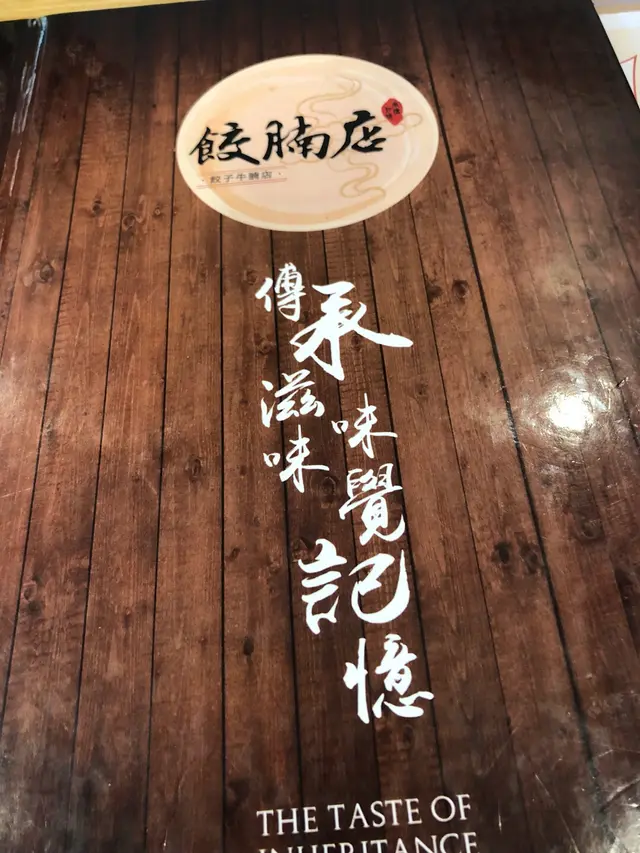 餃腩店
餃子牛腩店
傳承滋味
味覺記憶
THE TASTE OF
INHERITANCE